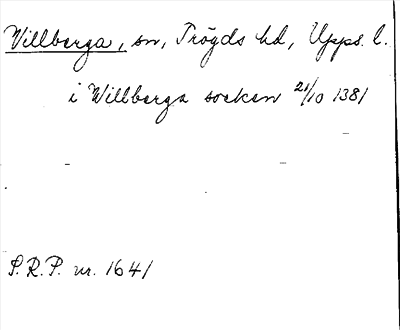 Villberga, sn, Trögds hd, Upps. l.
i Willberga socken 21/10 1381
S.R.P. nr. 1641